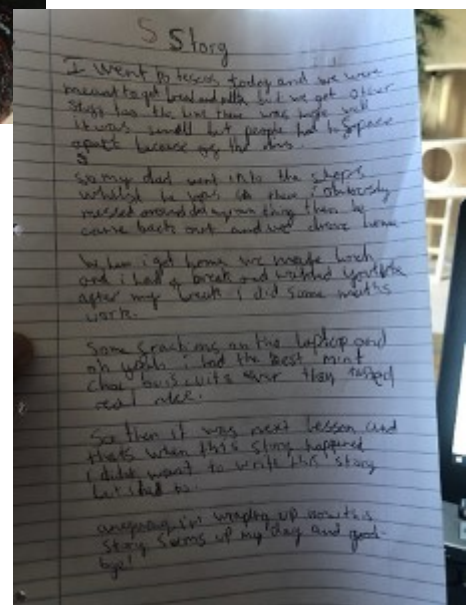 S Story
I went to tescos today and we were
meant to get bread and milk but we got other
stuff too the line there was huge well
it was small but people had to space
apart because of the
so my dad went into the shops
whilst he was in there i obviously
messed around did my own thing then he
came back out and we drove home
when i got home we made lunch
and i had a break and watched youtube
after my break i did some maths
work.
Some fractions on the laptop and
oh yeah i had the best mint
choc buiscuits ever they tasted
real nice.
So then it was next lesson and
thats when this story happened
I didnt want to write this story
but i had to.
anyway im wraping up now this
story sums up my day and good-
bye!